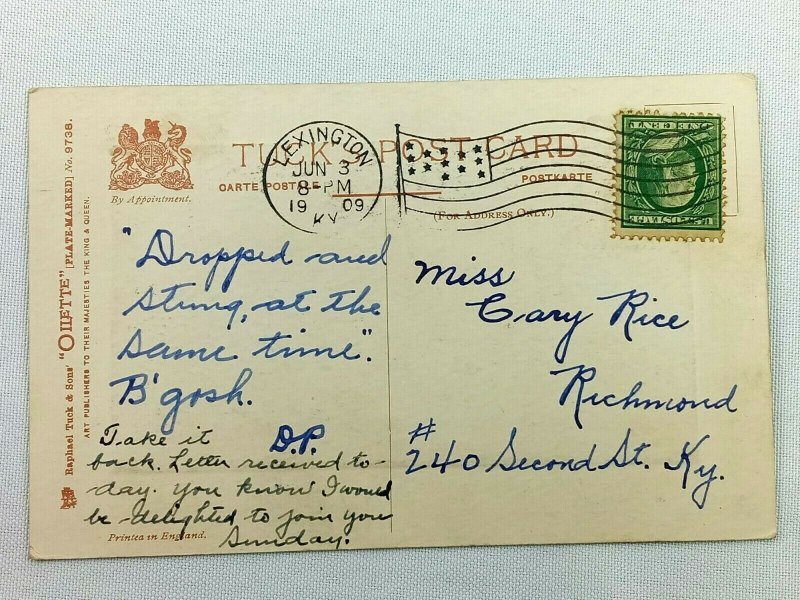 Raphael Tuck & Sons' "OILETTE" [PLATE-MARKED] No. 9738.
ART PUBLISHERS TO THEIR MAJESTIES THE KING & QUEEN.
By Appointment.
TUCK POST CARD
CARTE POSTALE
POSTKARTE
(FOR ADDRESS ONLY.)
LEXINGTON
JUN 3
8-PM
1909
KY
"Dropped and
stung, at the
same time".
B'gosh.
D.P.
Take it
back. Letter received to-
day. you know I would
be delighted to join you
Sunday.
Printed in England.
Miss
Cary Rice
Richmond
#
240 Second St. Ky.